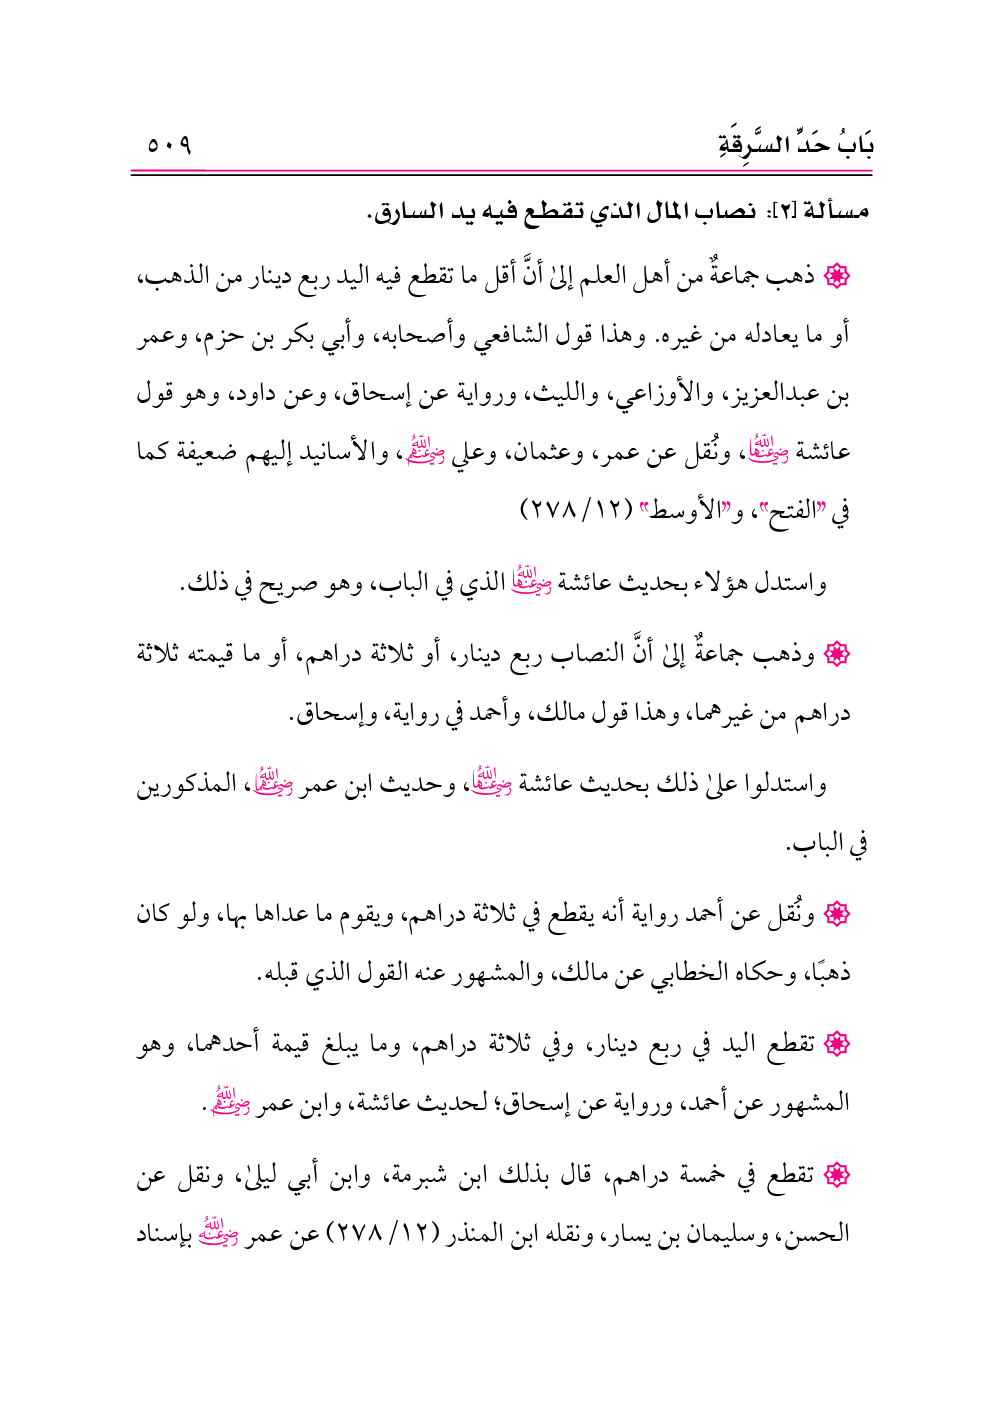 بَابُ حَدِّ السَّرِقَةِ ٥٠٩
مسألة [٢]: نصاب المال الذي تقطع فيه يد السارق.
ذهب جماعةٌ من أهل العلم إلىٰ أنَّ أقل ما تقطع فيه اليد ربع دينار من الذهب،
أو ما يعادله من غيره. وهذا قول الشافعي وأصحابه، وأبي بكر بن حزم، وعمر
بن عبدالعزيز، والأوزاعي، والليث، ورواية عن إسحاق، وعن داود، وهو قول
عائشة رضي الله عنها، ونُقل عن عمر، وعثمان، وعلي رضي الله عنهم، والأسانيد إليهم ضعيفة كما
في "الفتح"، و"الأوسط" (١٢/ ٢٧٨)
واستدل هؤلاء بحديث عائشة رضي الله عنها الذي في الباب، وهو صريح في ذلك.
وذهب جماعةٌ إلىٰ أنَّ النصاب ربع دينار، أو ثلاثة دراهم، أو ما قيمته ثلاثة
دراهم من غيرهما، وهذا قول مالك، وأحمد في رواية، وإسحاق.
واستدلوا علىٰ ذلك بحديث عائشة رضي الله عنها، وحديث ابن عمر رضي الله عنهما، المذكورين
في الباب.
ونُقل عن أحمد رواية أنه يقطع في ثلاثة دراهم، ويقوم ما عداها بها، ولو كان
ذهبًا، وحكاه الخطابي عن مالك، والمشهور عنه القول الذي قبله.
تقطع اليد في ربع دينار، وفي ثلاثة دراهم، وما يبلغ قيمة أحدهما، وهو
المشهور عن أحمد، ورواية عن إسحاق؛ لحديث عائشة، وابن عمر رضي الله عنهم.
تقطع في خمسة دراهم، قال بذلك ابن شبرمة، وابن أبي ليلىٰ، ونقل عن
الحسن، وسليمان بن يسار، ونقله ابن المنذر (١٢/ ٢٧٨) عن عمر رضي الله عنه بإسناد